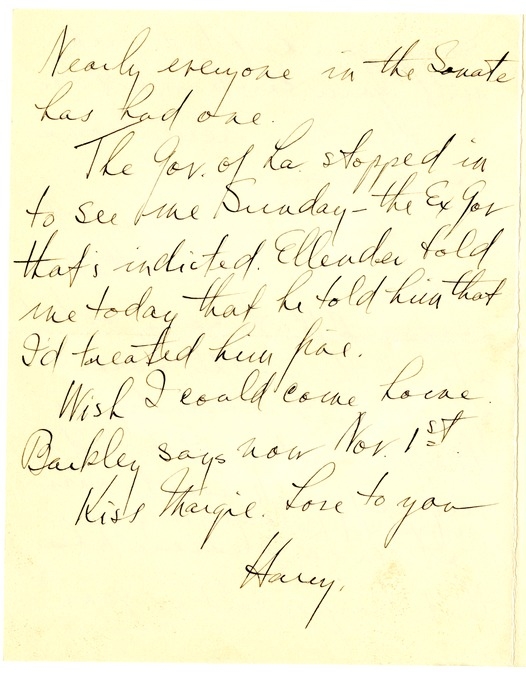 Nearly everyone in the Senate
has had one.
The Gov. of La. stopped in
to see me Sunday - the Ex Gov
that's indicted. Ellender told
me today that he told him that
I'd treated him fine.
Wish I could come home.
Barkley says now Nov. 1st.
Kiss Margie. Love to you
Harry.